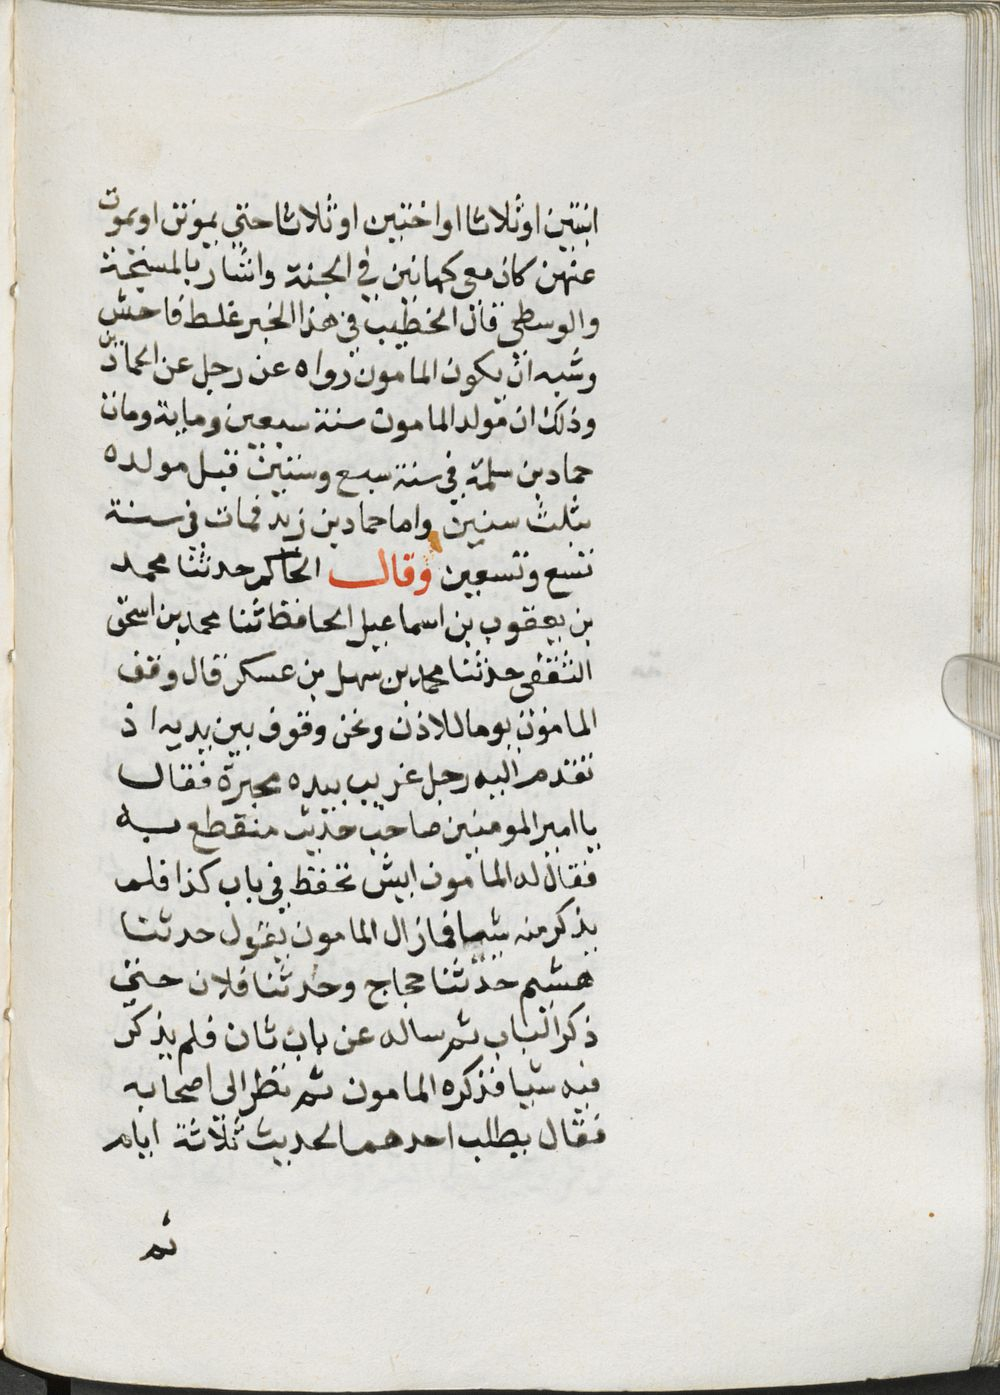 ابنتين او ثلاثا او اختين او ثلاثا حتى يموتن او يموت
عنهن كان معي كهاتين في الجنة واشار بالمسبحة
والوسطى قال الخطيب في هذا الخبر غلط فاحش
وشبه ان يكون المامون رواه عن رجل عن الحمادين
وذلك ان مولد المامون سنة سبعين وماية ومات
حماد بن سلمة في سنة سبع وستين قبل مولده
بثلث سنين واما حماد بن زيد فمات في سنة
تسع وتسعين وقال الحاكم حدثنا محمد
بن يعقوب بن اسماعيل الحافظ ثنا محمد بن اسحق
الثقفي حدثنا محمد بن سهل بن عسكر قال وقف
المامون يوما للاذن ونحن وقوف بين يديه اذ
تقدم اليه رجل غريب بيده محبرة فقال
يا امير المومنين صاحب حديث منقطع به
فقال له المامون ايش تحفظ في باب كذا فلم
يذكر منه شيا فما زال المامون يقول حدثنا
هشيم حدثنا حجاج وحدثنا فلان حتى
ذكر الباب ثم ساله عن باب ثان فلم يذكر
فيه شيا فذكره المامون ثم نظر الى اصحابه
فقال يطلب احدهم الحديث ثلاثة ايام
ثم